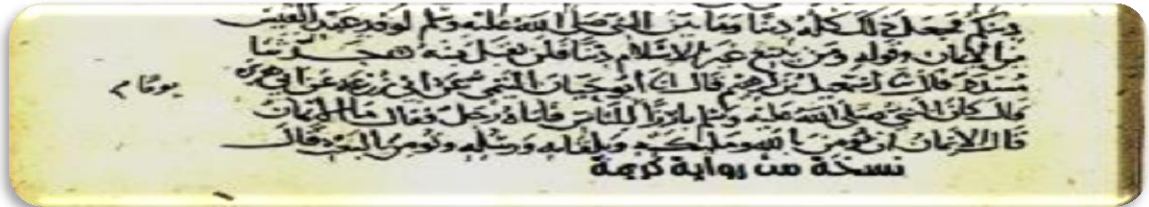 دينكم فجعل ذلك كله دينا وما بين النبي صلى الله عليه وسلم لوفد عبد القيس
من الايمان وقوله ومن يبتغ غير الاسلام دينا فلن يقبل منه حدثنا
مسدد قال نا اسمعيل بن ابرهيم قال انا ابو حيان التيمي عن ابي زرعة عن ابي هريرة
قال كان النبي صلى الله عليه وسلم بارزا للناس فاتاه رجل فقال ما الايمان
قال الايمان ان تؤمن بالله وملىكته وبلقايه ورسله وتؤمن بالبعث قال
نسخة من رواية كريمة